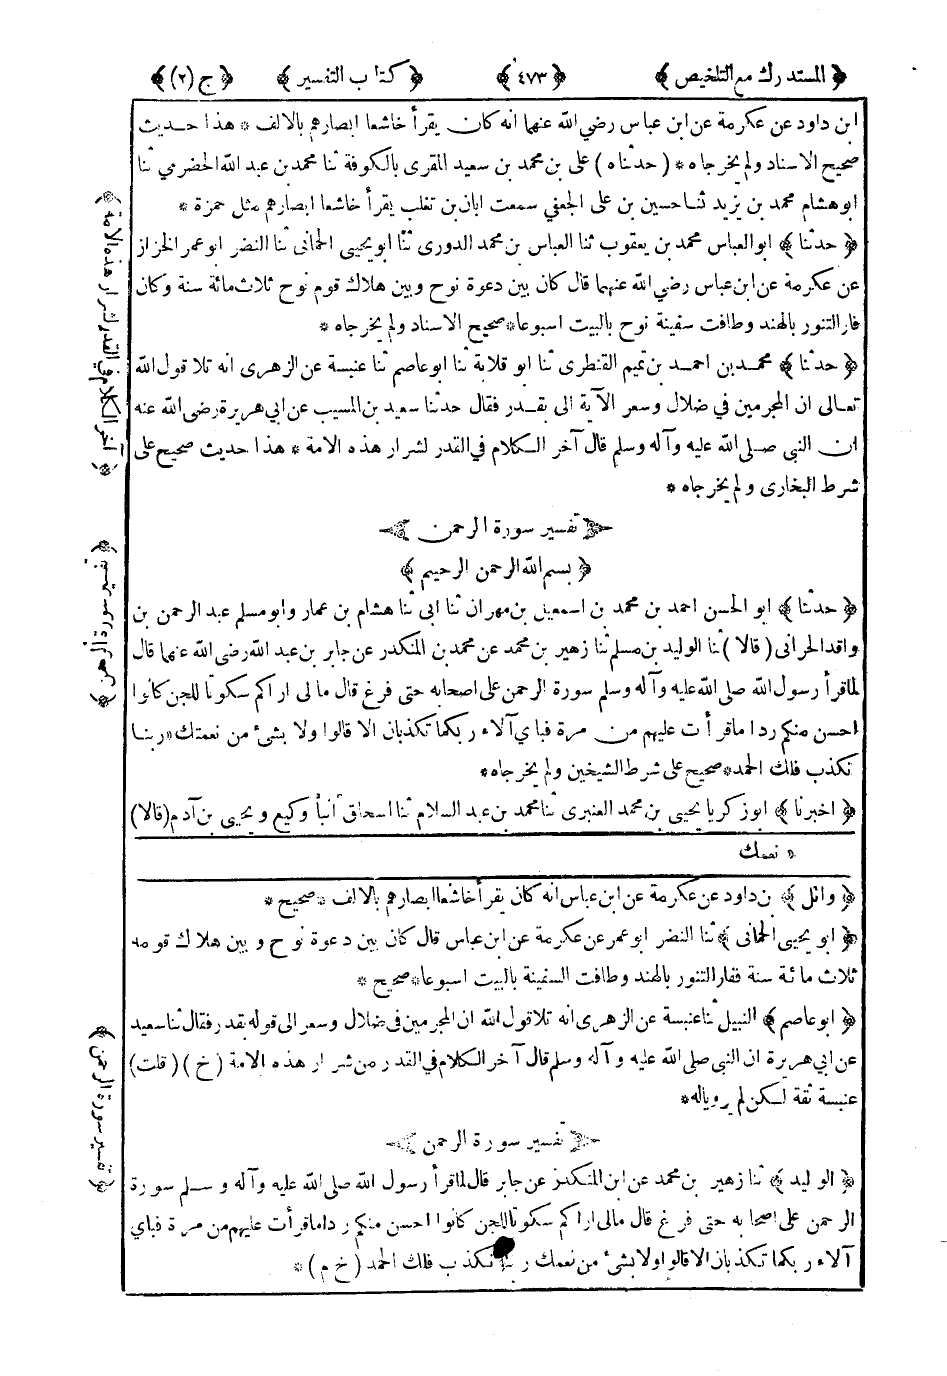 ﴿ المستدرك مع التلخيص ﴾ ﴿ ٤٧٣ ﴾ ﴿ كتاب التفسير ﴾ ﴿ ج (٢) ﴾
ابن داود عن عكرمة عن ابن عباس رضي الله عنهما انه كان يقرأ خاشعا ابصارهم بالالف * هذا حديث
صحيح الاسناد ولم يخرجاه * ( حدثناه ) على بن محمد بن سعيد المقرى بالكوفة ثنا محمد بن عبد الله الحضرمي ثنا
ابو هشام محمد بن يزيد ثنا حسين بن على الجعفي سمعت ابان بن تغلب يقرأ خاشعا ابصارهم مثل حمزة *
﴿ حدثنا ﴾ ابو العباس محمد بن يعقوب ثنا العباس بن محمد الدورى ثنا ابو يحيى الحمانى ثنا النضر ابو عمر الخزاز
عن عكرمة عن ابن عباس رضي الله عنهما قال كان بين دعوة نوح وبين هلاك قوم نوح ثلاث مائة سنة وكان
فار التنور بالهند وطافت سفينة نوح بالبيت اسبوعا * صحيح الاسناد ولم يخرجاه *
﴿ حدثنا ﴾ محمد بن احمد بن تميم القنطرى ثنا ابو قلابة ثنا ابو عاصم ثنا عنبسة عن الزهرى انه تلا قول الله
تعالى ان المجرمين في ضلال وسعر الآية الى بقدر فقال حدثنا سعيد بن المسيب عن ابي هريرة رضى الله عنه
ان النبي صلى الله عليه وآله وسلم قال آخر الكلام في القدر لشرار هذه الامة * هذا حديث صحيح على
شرط البخارى ولم يخرجاه *
تفسير سورة الرحمن
﴿ بسم الله الرحمن الرحيم ﴾
﴿ حدثنا ﴾ ابو الحسن احمد بن محمد بن اسمعيل بن مهران ثنا ابى ثنا هشام بن عمار وابو مسلم عبد الرحمن بن
واقد الحرانى ( قالا ) ثنا الوليد بن مسلم ثنا زهير بن محمد عن محمد بن المنكدر عن جابر بن عبد الله رضى الله عنهما قال
لما قرأ رسول الله صلى الله عليه وآله وسلم سورة الرحمن على اصحابه حتى فرغ قال مالى اراكم سكوتا للجن كانوا
احسن منكم ردا ما قرأت عليهم من مرة فباي آلاء ربكما تكذبان الا قالوا ولا بشئ من نعمتك * ربنا
نكذب فلك الحمد * صحيح على شرط الشيخين ولم يخرجاه *
﴿ اخبرنا ﴾ ابو زكريا يحيى بن محمد العنبرى ثنا محمد بن عبد السلام ثنا اسحاق انبأ وكيع ويحيى بن آدم (قالا)
* نعمك
﴿ وائل ﴾ بن داود عن عكرمة عن ابن عباس انه كان يقرأ خاشعا ابصارهم بالالف * صحيح *
﴿ ابو يحيى الحمانى ﴾ ثنا النضر ابو عمر عن عكرمة عن ابن عباس قال كان بين دعوة نوح وبين هلاك قومه
ثلاث مائة سنة ففار التنور بالهند وطافت السفينة بالبيت اسبوعا * صحيح *
﴿ ابو عاصم ﴾ النبيل ثنا عنبسة عن الزهرى انه تلا قول الله ان المجرمين في ضلال وسعر الى قوله بقدر فقال ثنا سعيد
عن ابي هريرة ان النبي صلى الله عليه وآله وسلم قال آخر الكلام في القدر من شرار هذه الامة ( خ ) ( قلت )
عنبسة ثقة لكن لم يرويا له *
تفسير سورة الرحمن
﴿ الوليد ﴾ ثنا زهير بن محمد عن ابن المنكدر عن جابر قال لما قرأ رسول الله صلى الله عليه وآله وسلم سورة
الرحمن على اصحابه حتى فرغ قال مالى اراكم سكوتا للجن كانوا احسن منكم ردا ما قرأت عليهم من مرة فباي
آلاء ربكما تكذبان الا قالوا ولا بشئ من نعمك ربنا نكذب فلك الحمد ( خ م ) *
﴿ آخر الكلام في القدر لشرار هذه الامة ﴾
﴿ تفسير سورة الرحمن ﴾